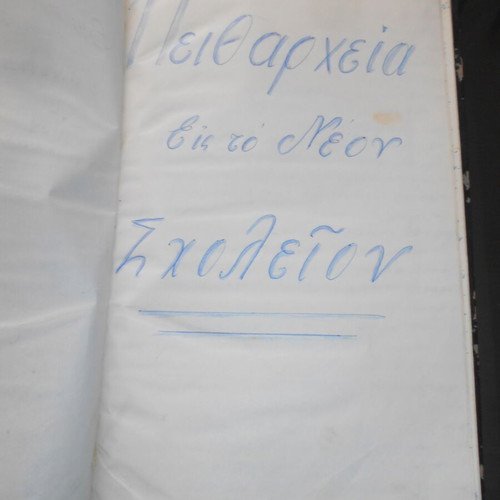 Πειθαρχεία
Εἰς τό Νέον
Σχολεῖον